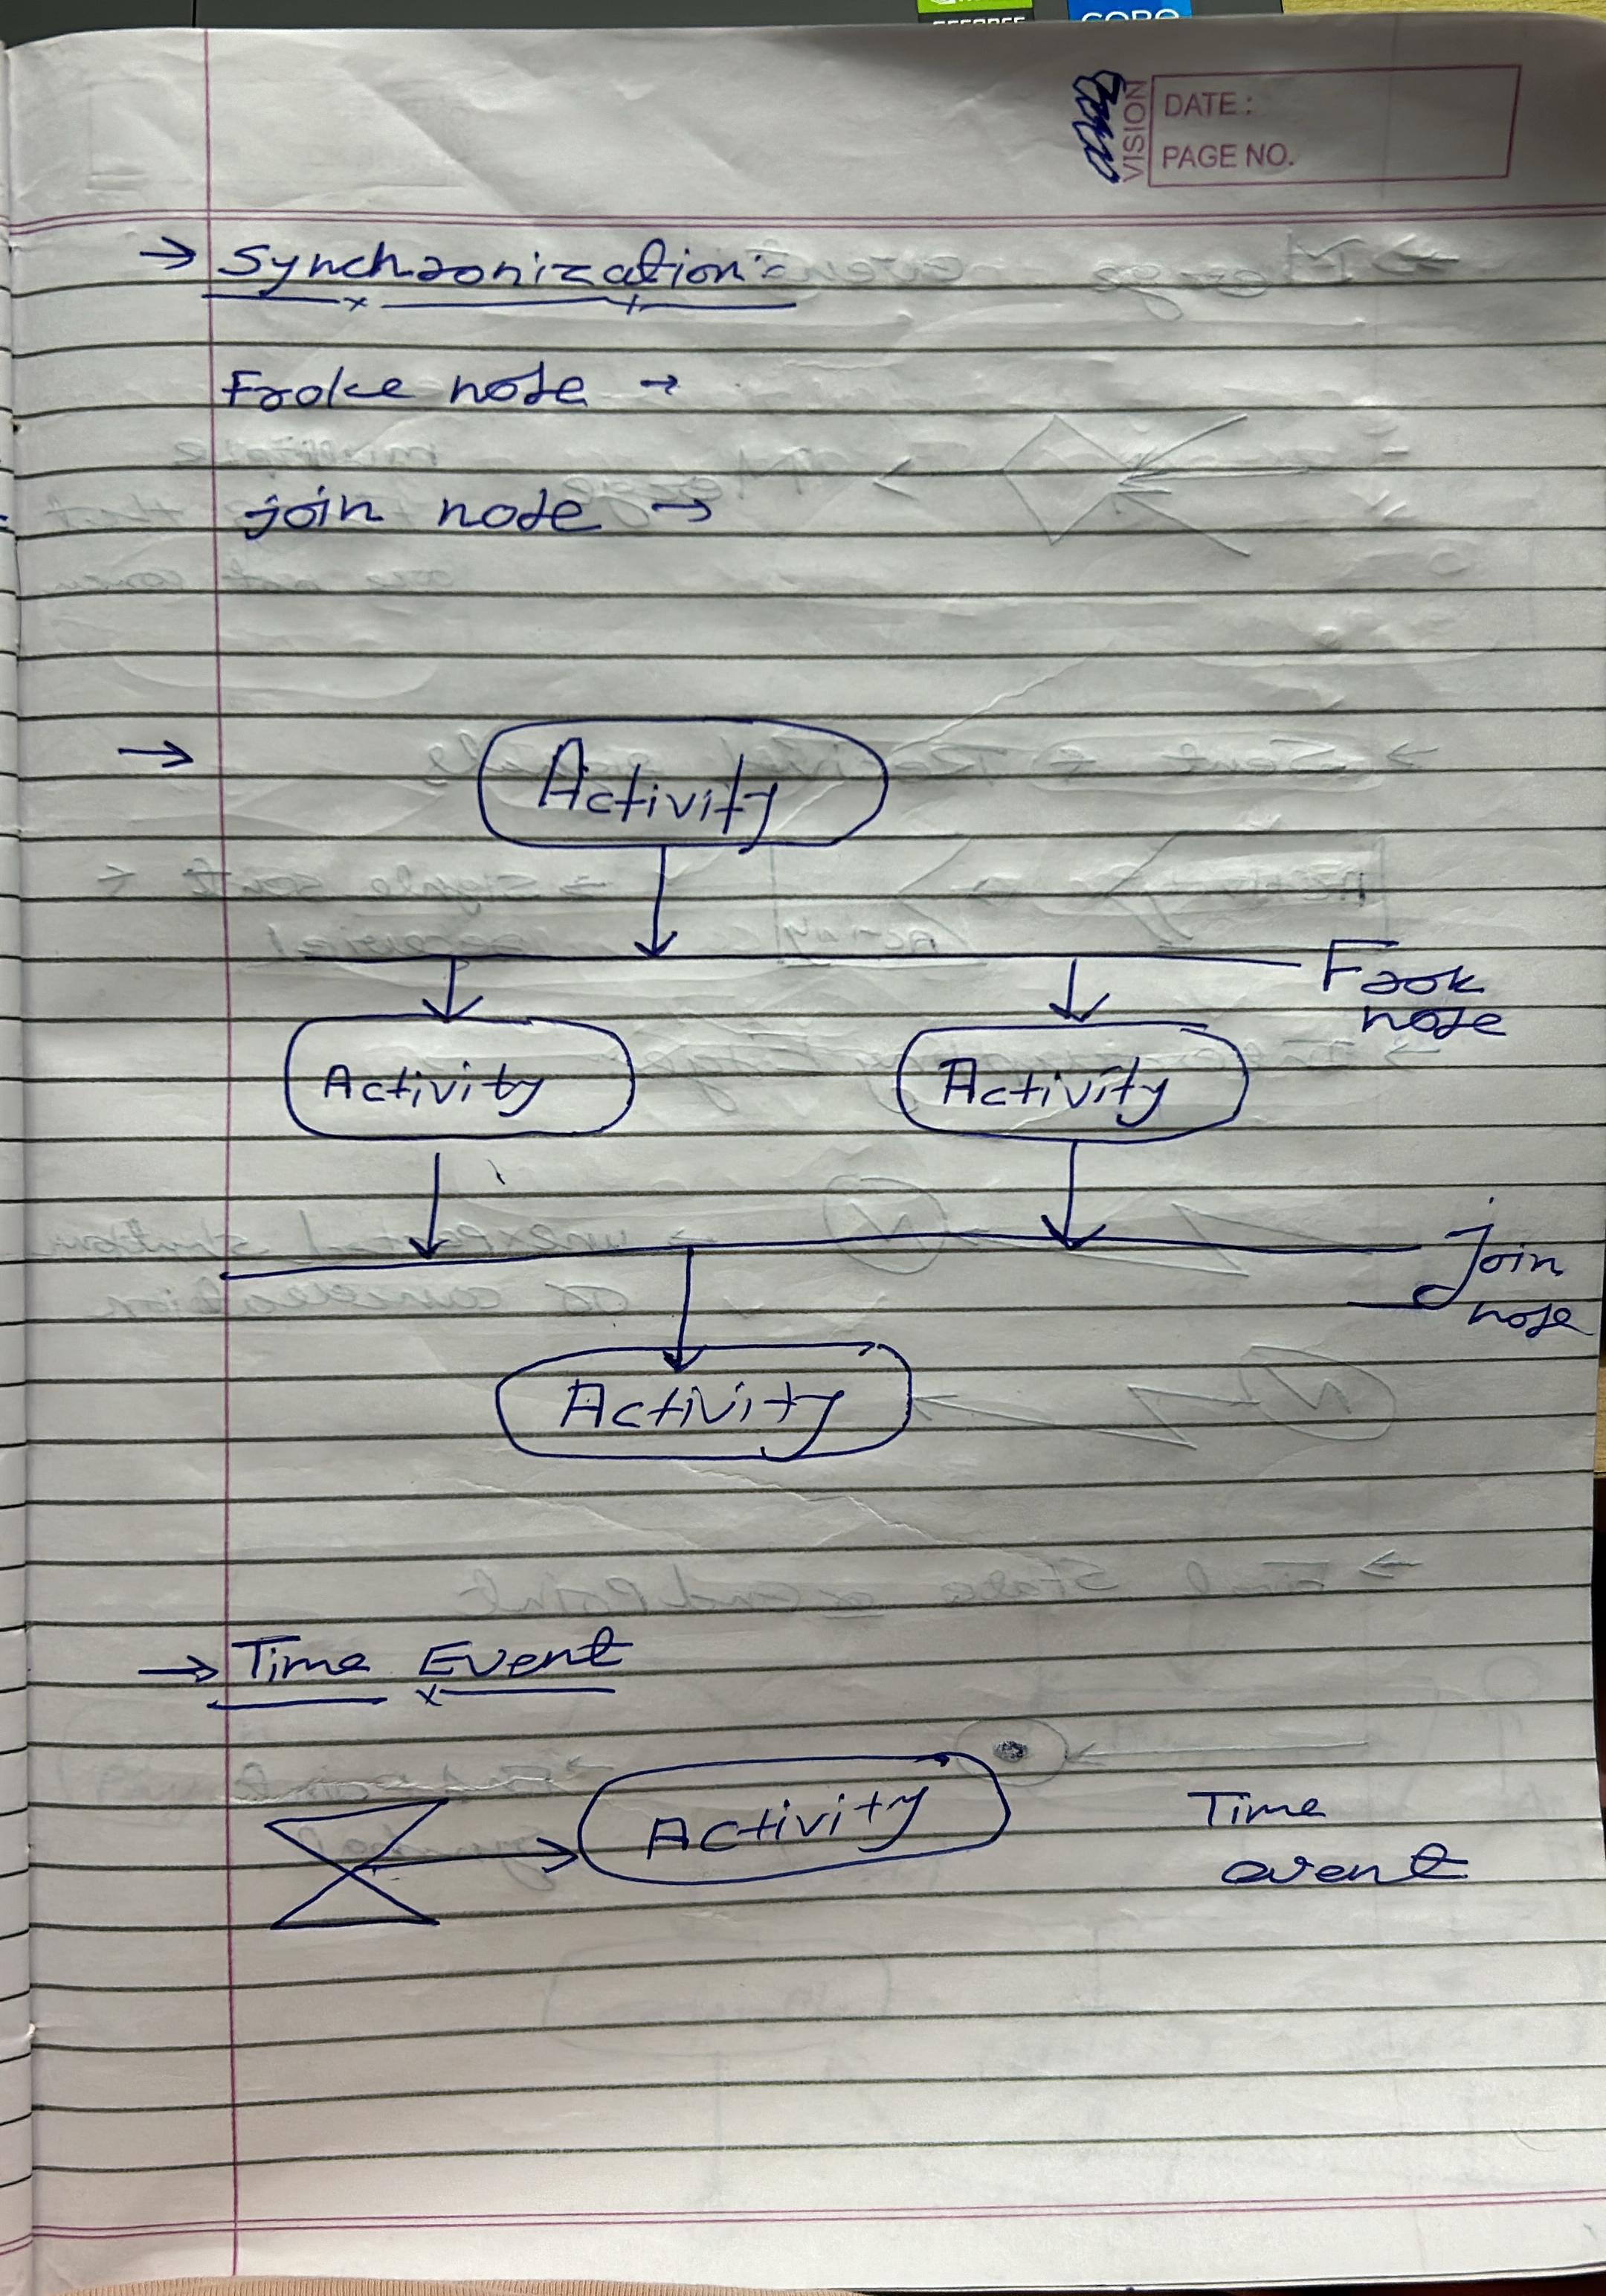 CORE
VISION
DATE :
PAGE NO.
→ Synchronization :-
Froke node →
join node →
→ Activity
Frok
node
Activity Activity
Join
node
Activity
→ Time Event
Activity
Time
event